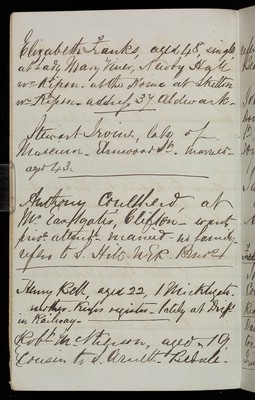 Elizabeth Franks, aged 48, single
at Lady Mary Vyner, Newby Hall
nr Ripon. at the Home at Skelton
nr Ripon - address 37 Aldwark -
Stewart Irvine, lab. of
Museum - Elmwood St. married -
aged 43.
Anthony Coultherd at
Mr Eastgate's, Clifton - want
married - no family,
refers to S.
Henry Bell, aged 22, 1 Micklegate -
register - lately at
in Railway -
Robt. McPherson, aged 19
Cousin to S. Arnett - Bedale.